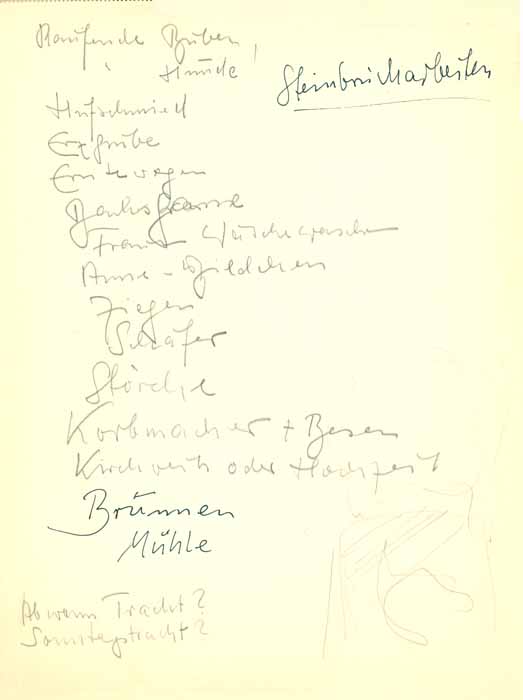 Raufende Buben,
Hunde!
Steinbrucharbeiten
Hufschmied
Erzgrube
Erntewagen
Wäschewaschen
Anne-Wildchen
Ziegen
Schäfer
Störche
Korbmacher + Besen
Kirchweih oder Hochzeit
Brünnen
Mühle
Ab wann Tracht?
Sonntagstracht?